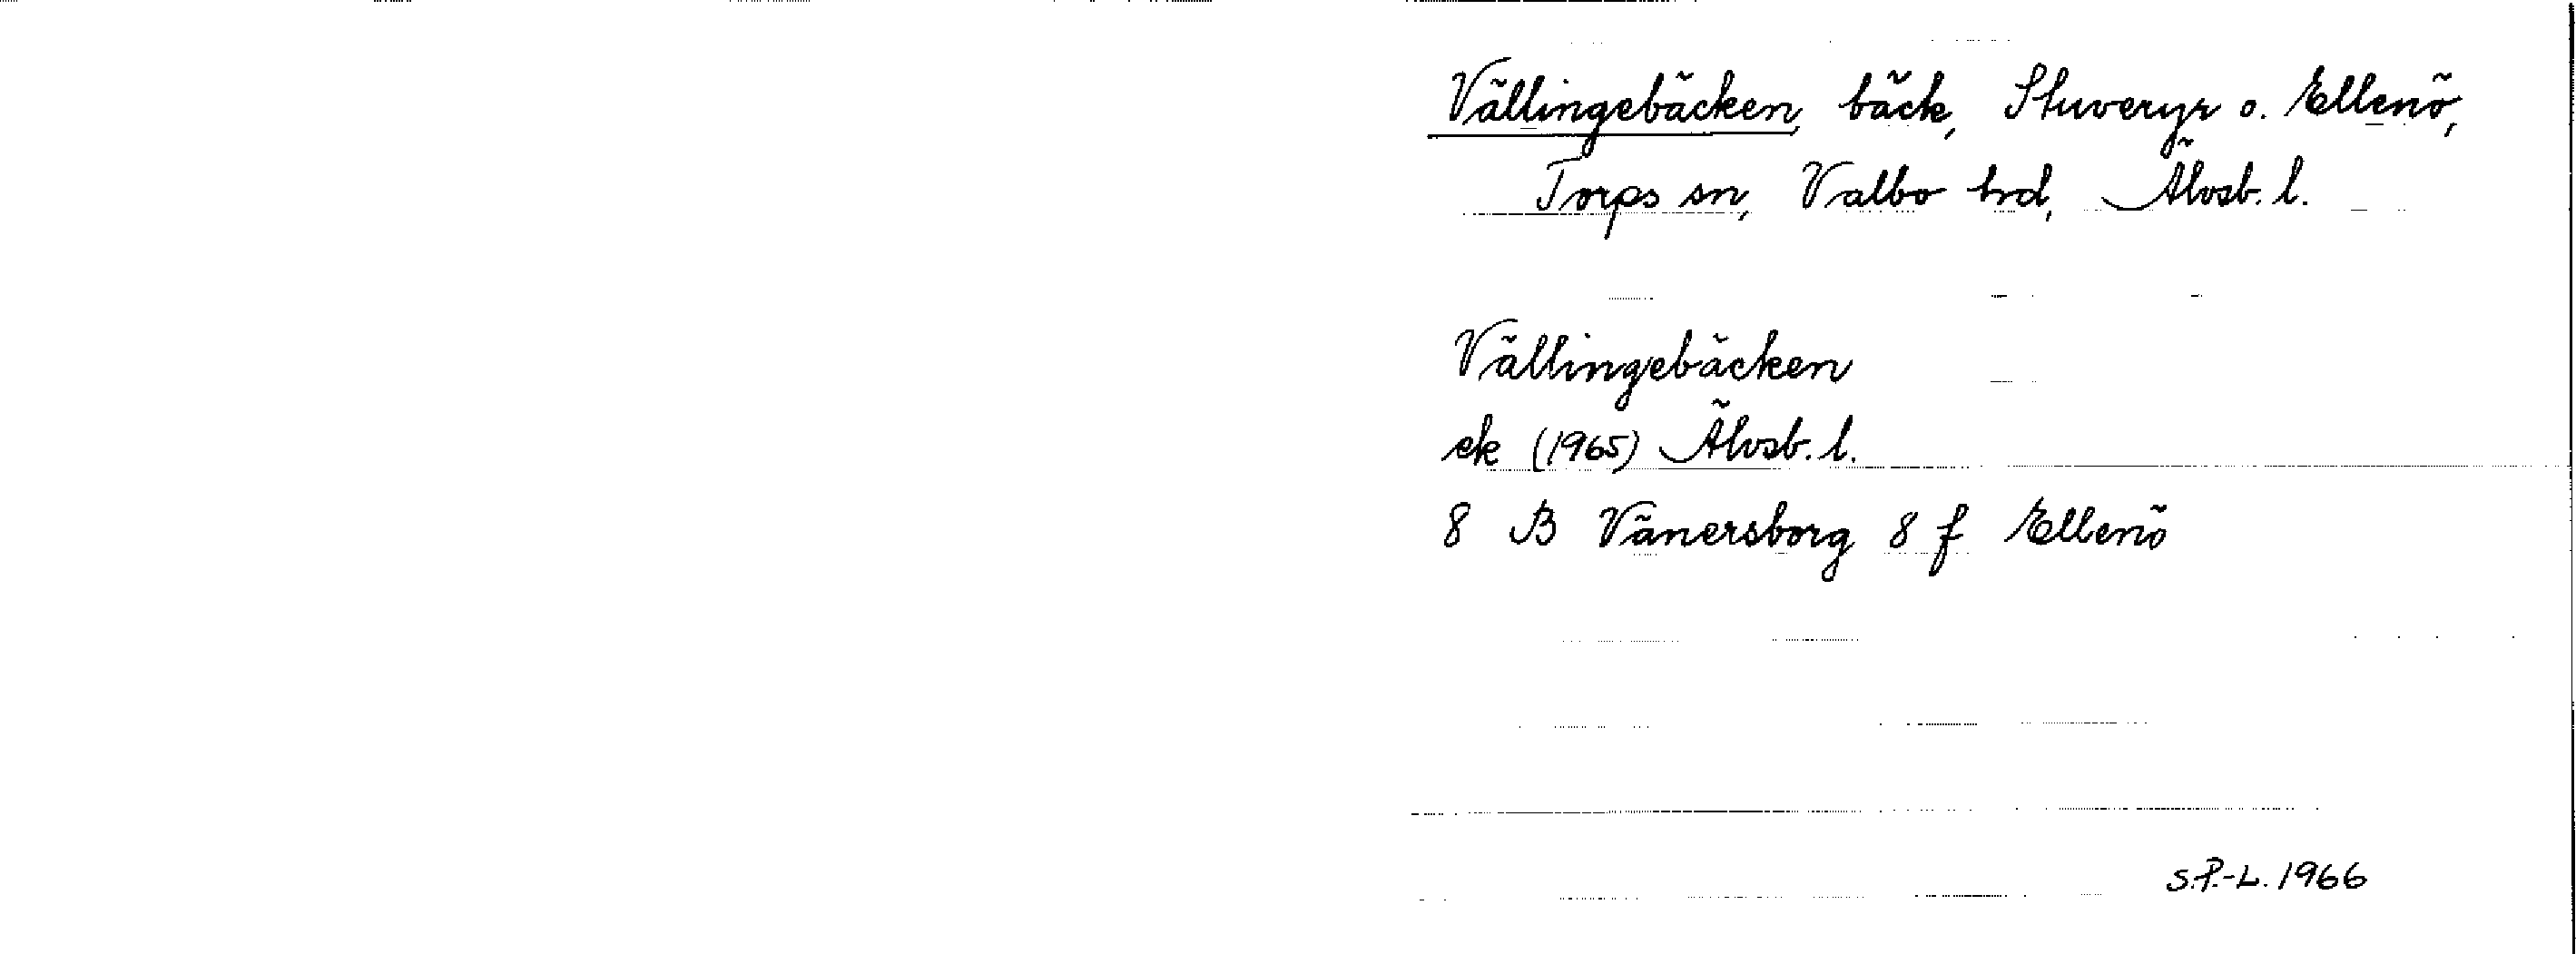 Vällingebäcken, bäck, Stuveryr o. Ellenö,
Torps sn, Valbo hd, Älvsb. l.
Vällingebäcken
ek (1965) Älvsb. l.
8 B Vänersborg 8 f Ellenö
S.P.-L. 1966